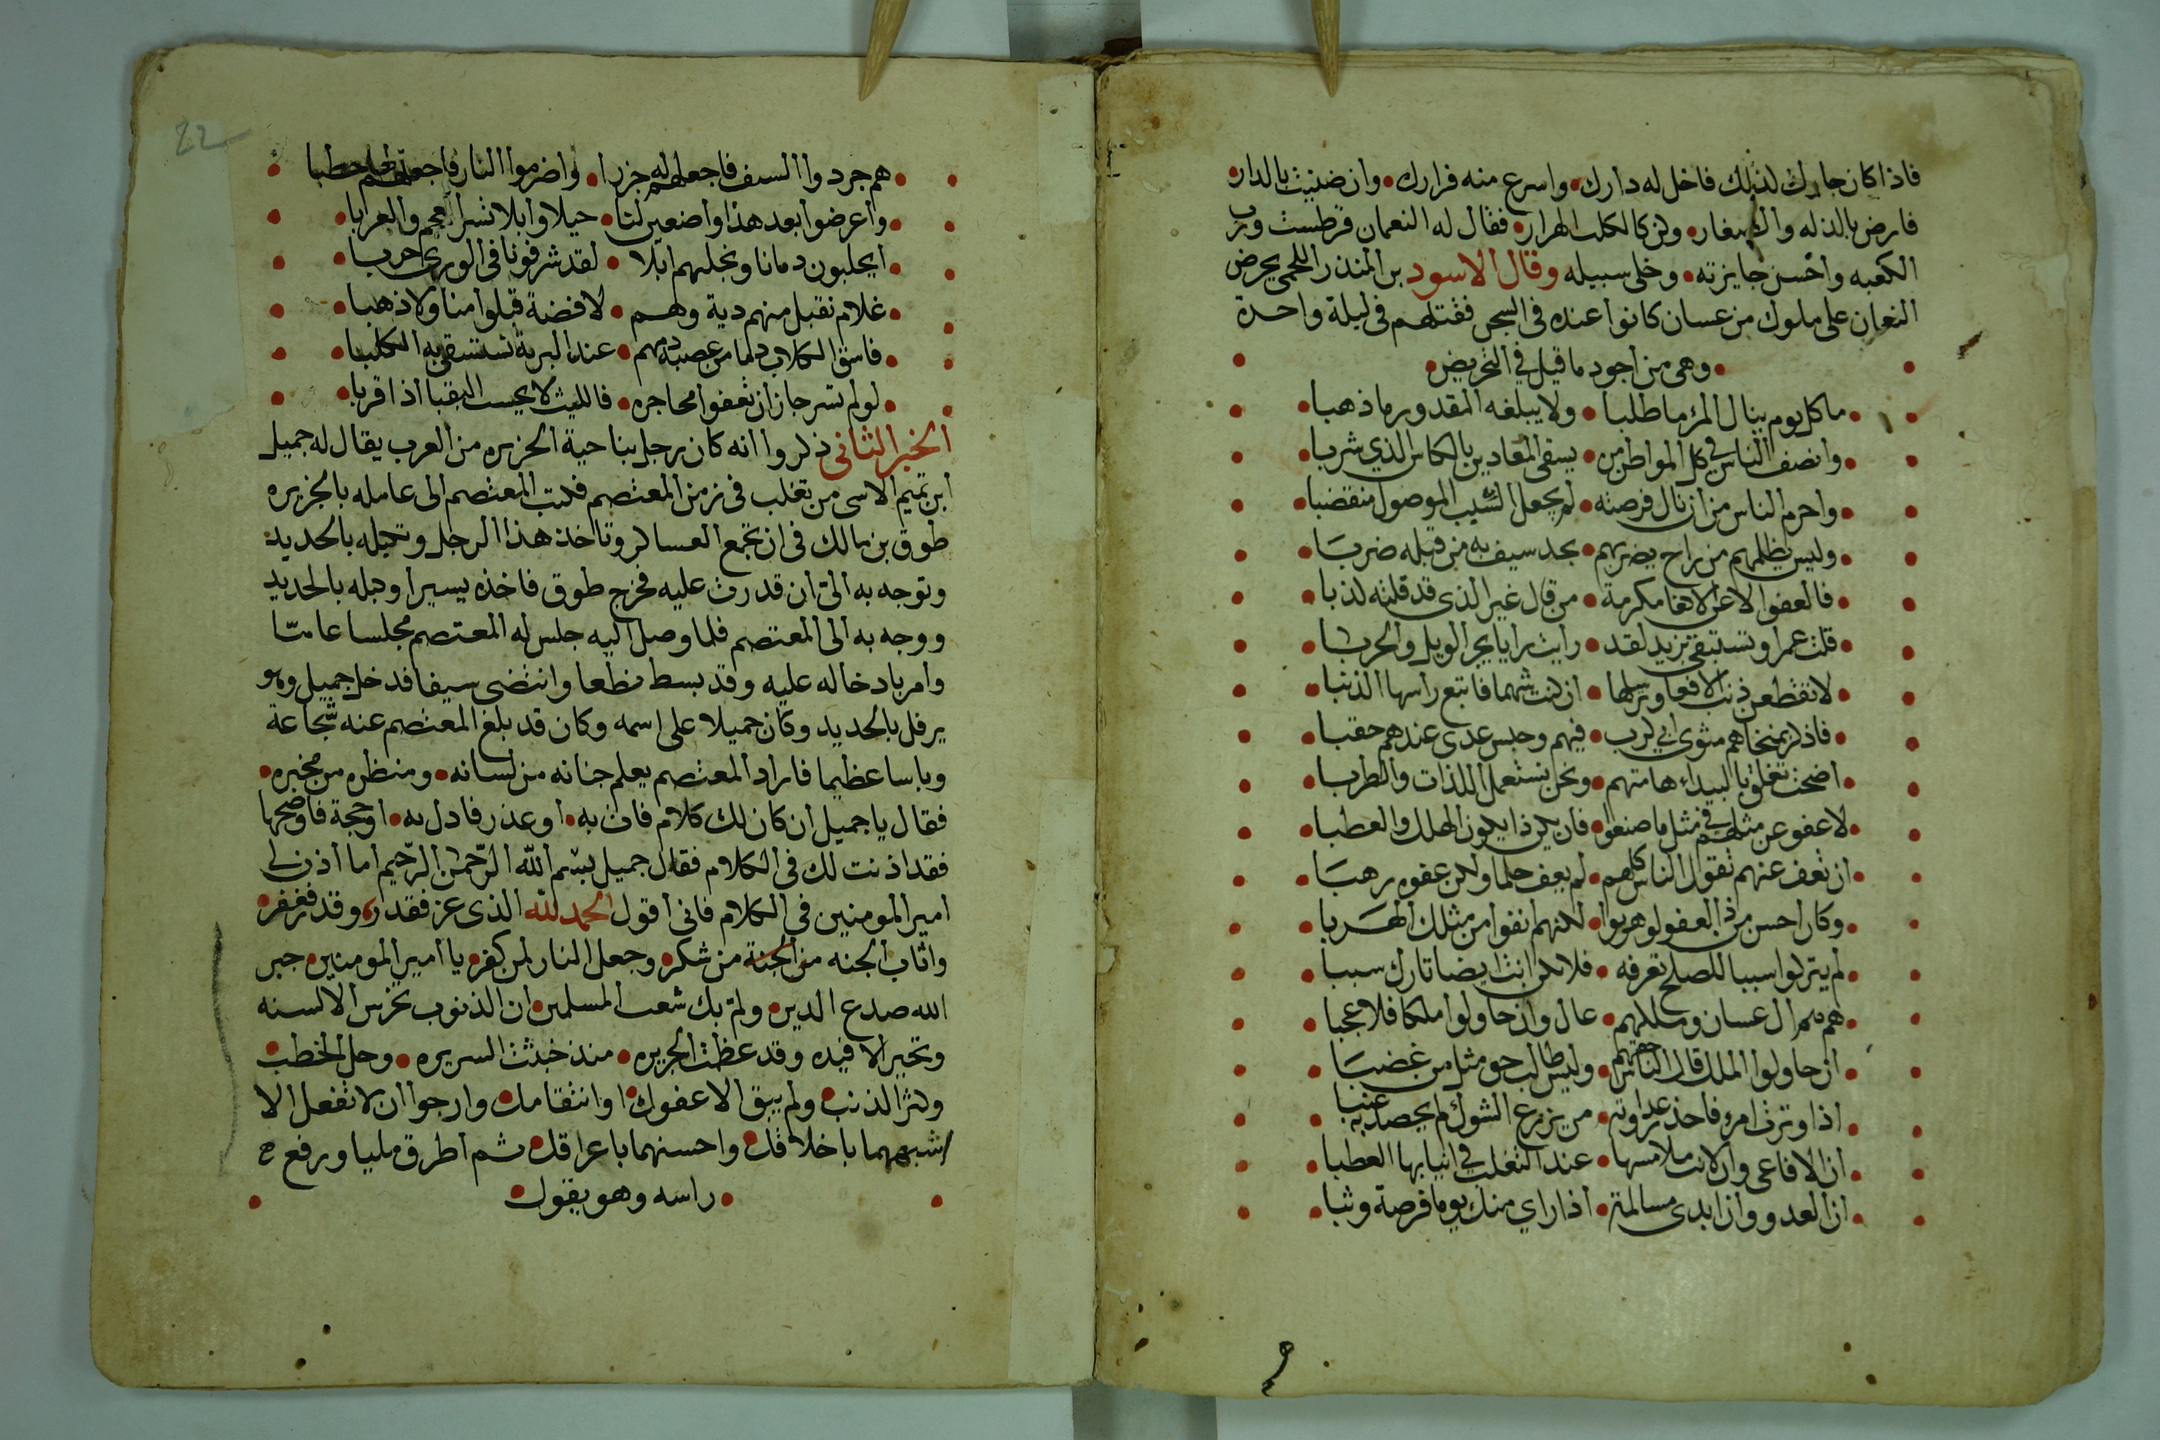 فاذا كان جارك لدىك فاخل له دارك • واسرع منه فرارك • وان ضنيت بالدار •
فارض بالذله والصغار • وكن كالكلب الهرار • فقال له النعمان قرطست ورب
الكعبه واحسن جايزته • وخلى سبيله وقال الاسود بن المنذر اللخمى يحرض
النعمان على ملوك من عسان كانوا عنده فى السجن فقتلهم فى ليلة واحدة
• وهى من اجود ما قيل فى التحريض •
• ما كل يوم ينال المرء ما طلبا • ولا يبلغه المقدور ما ذهبا •
• وانصف الناس فى كل المواطن من • يسقى المعادين بالكاس الذي شربا •
• واحرم الناس من ان نال فرصته • لم يجعل السبب الموصول منقضبا •
• وليس يظلمهم من راح يضربهم • بحد سيف به من قبله ضربا •
• فالعفو الا عن الاكفا مكرمة • من قال غير الذى قد قلته كذبا •
• قتلت عمرا وتستبقى يزيد لقد • رايت رايا يجر الويل والحربا •
• لا تقطعن ذنب الافعا وترسلها • ان كنت شهما فاتبع راسها الذنبا •
• فاذكر مثوى ابي كرب • فيهم وحبس عدى عندهم حقبا •
• اضحت تغلق بالبيداء هامتهم • ونحن نستعمل اللذات والطربا •
• لا عفو عن مثلهم فى مثل ما صنعوا • فان يكن ذا يكون الهلك والعطبا •
• ان تعف عنهم تقول الناس كلهم • لم يعف حلما ولكن عفوه رهبا •
• وكان احسن من ذا العفو لو هربوا • لكنهم انفوا من مثلك الهربا •
• لم يتركوا سببا للصلح تعرفه • فلا تكن انت ايضا تارك سببا •
• هم ال عسان وملكهم • عال وان حاولوا ملكا فلا عجبا •
• ان حاولوا الملك قال الناس حقهم • وليس طالب حق مثل من غضبا •
• اذا وترت امرء فاحذر عداوته • من يزرع الشوك لم يحصد به عنبا •
• ان الافاعى وان لانت ملامسها • عند التقلب فى انيابها العطبا •
• ان العدو وان ابدى مسالمة • اذا راي منك يوما فرصة وثبا •
22
• هم جردوا السيف فاجعلهم له جزرا • واضرموا النار فاجعلهم لها حطبا
• واعرضوا بعد هذا واضعين لنا • خيلا وابلا تسر العجم والعربا •
• ايحلبون دمانا ونحلبهم ابلا • لقد شرفونا فى الورى حربا •
• غلام نقبل منهم دية وهم • لا فضة قبلوا منا ولا ذهبا •
• فاسق الكلاب دما من عصبة دمهم • عند البرية تستشفى به الكلبا •
• لو لم تسر جاز ان تعفوا محاجره • فالليث لا يحسب البقبا اذا قربا •
الخبر الثانى ذكروا انه كان رجل بناحية الجزيره من العرب يقال له جميل
ابن تميم الاسى من تغلب فى زمن المعتصم فكتب المعتصم الى عامله بالجزيره
طوق بن مالك فى ان تجمع العساكر وتاخذ هذا الرجل وتحمله بالحديد
وتوجه به الىّ ان قدرت عليه فخرج طوق فاخذه يسيرا وكبله بالحديد
ووجه به الى المعتصم فلما وصل اليه جلس له المعتصم مجلسا عامّا
وامر بادخاله عليه وقد بسط نطعا وانتضى سيفا فدخل جميل وهو
يرفل بالحديد وكان جميلا على اسمه وكان قد بلغ المعتصم عنه شجاعة
وباسا عظيما فاراد المعتصم يعلم جنانه من لسانه • ومنظره من مخبره •
فقال يا جميل ان كان لك كلام فات به • او عذر فادل به • او حجة فاوضحها
فقد اذنت لك فى الكلام فقال جميل بسم الله الرّحمن الرّحيم اما اذن لى
امير المومنين فى الكلام فانى اقول الحمد لله الذى عز فقدر • وقدر فغفر •
واثاب الجنه من الجنة من شكر • وجعل النار لمن كفر • يا امير المومنين • جبر
الله صدع الدين • ولمّ بك شعب المسلمين • ان الذنوب تخرس الالسنه
وتحير الافيده وقد عظمت الجريره • منذ خبثت السريره • وحل الخطب •
وكثر الذنب • ولم يبق الا عفوك • او انتقامك • وارجوا ان لا تفعل الا
اشبههما باخلاقك • واحسنهما باعراقك • ثم اطرق مليا ورفع
• راسه وهو يقول •